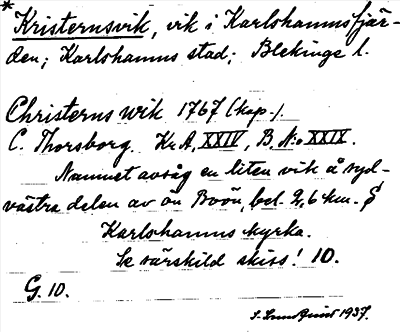 * Kristernsvik, vik i Karlshamnsfjär-
den; Karlshamns stad; Blekinge l.
Christerns wik 1767 (kop.).
C. Thorsborg. Kr. A, XXIV, B, N:o XXIX.
Namnet avsåg en liten vik å syd-
västra delen av ön Boön, bel. 2,6 km. S
Karlshamns kyrka.
Se särskild skiss! 10.
G. 10.
S. Lundquist 1937.